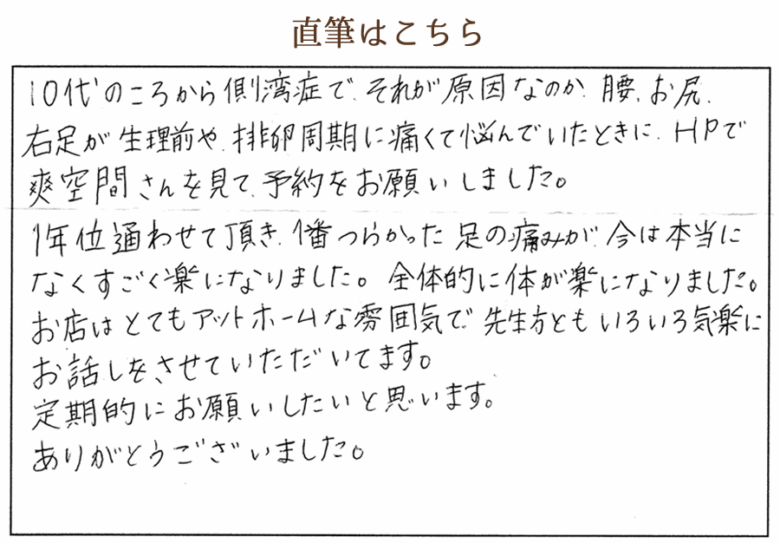 直筆はこちら
10代のころから側湾症で、それが原因なのか、腰、お尻、
右足が生理前や、排卵周期に痛くて悩んでいたときに、HPで
爽空間さんを見て、予約をお願いしました。
1年位通わせて頂き、1番つらかった足の痛みが、今は本当に
なくすごく楽になりました。全体的に体が楽になりました。
お店はとてもアットホームな雰囲気で、先生方ともいろいろ気楽に
お話しをさせていただいてます。
定期的にお願いしたいと思います。
ありがとうございました。